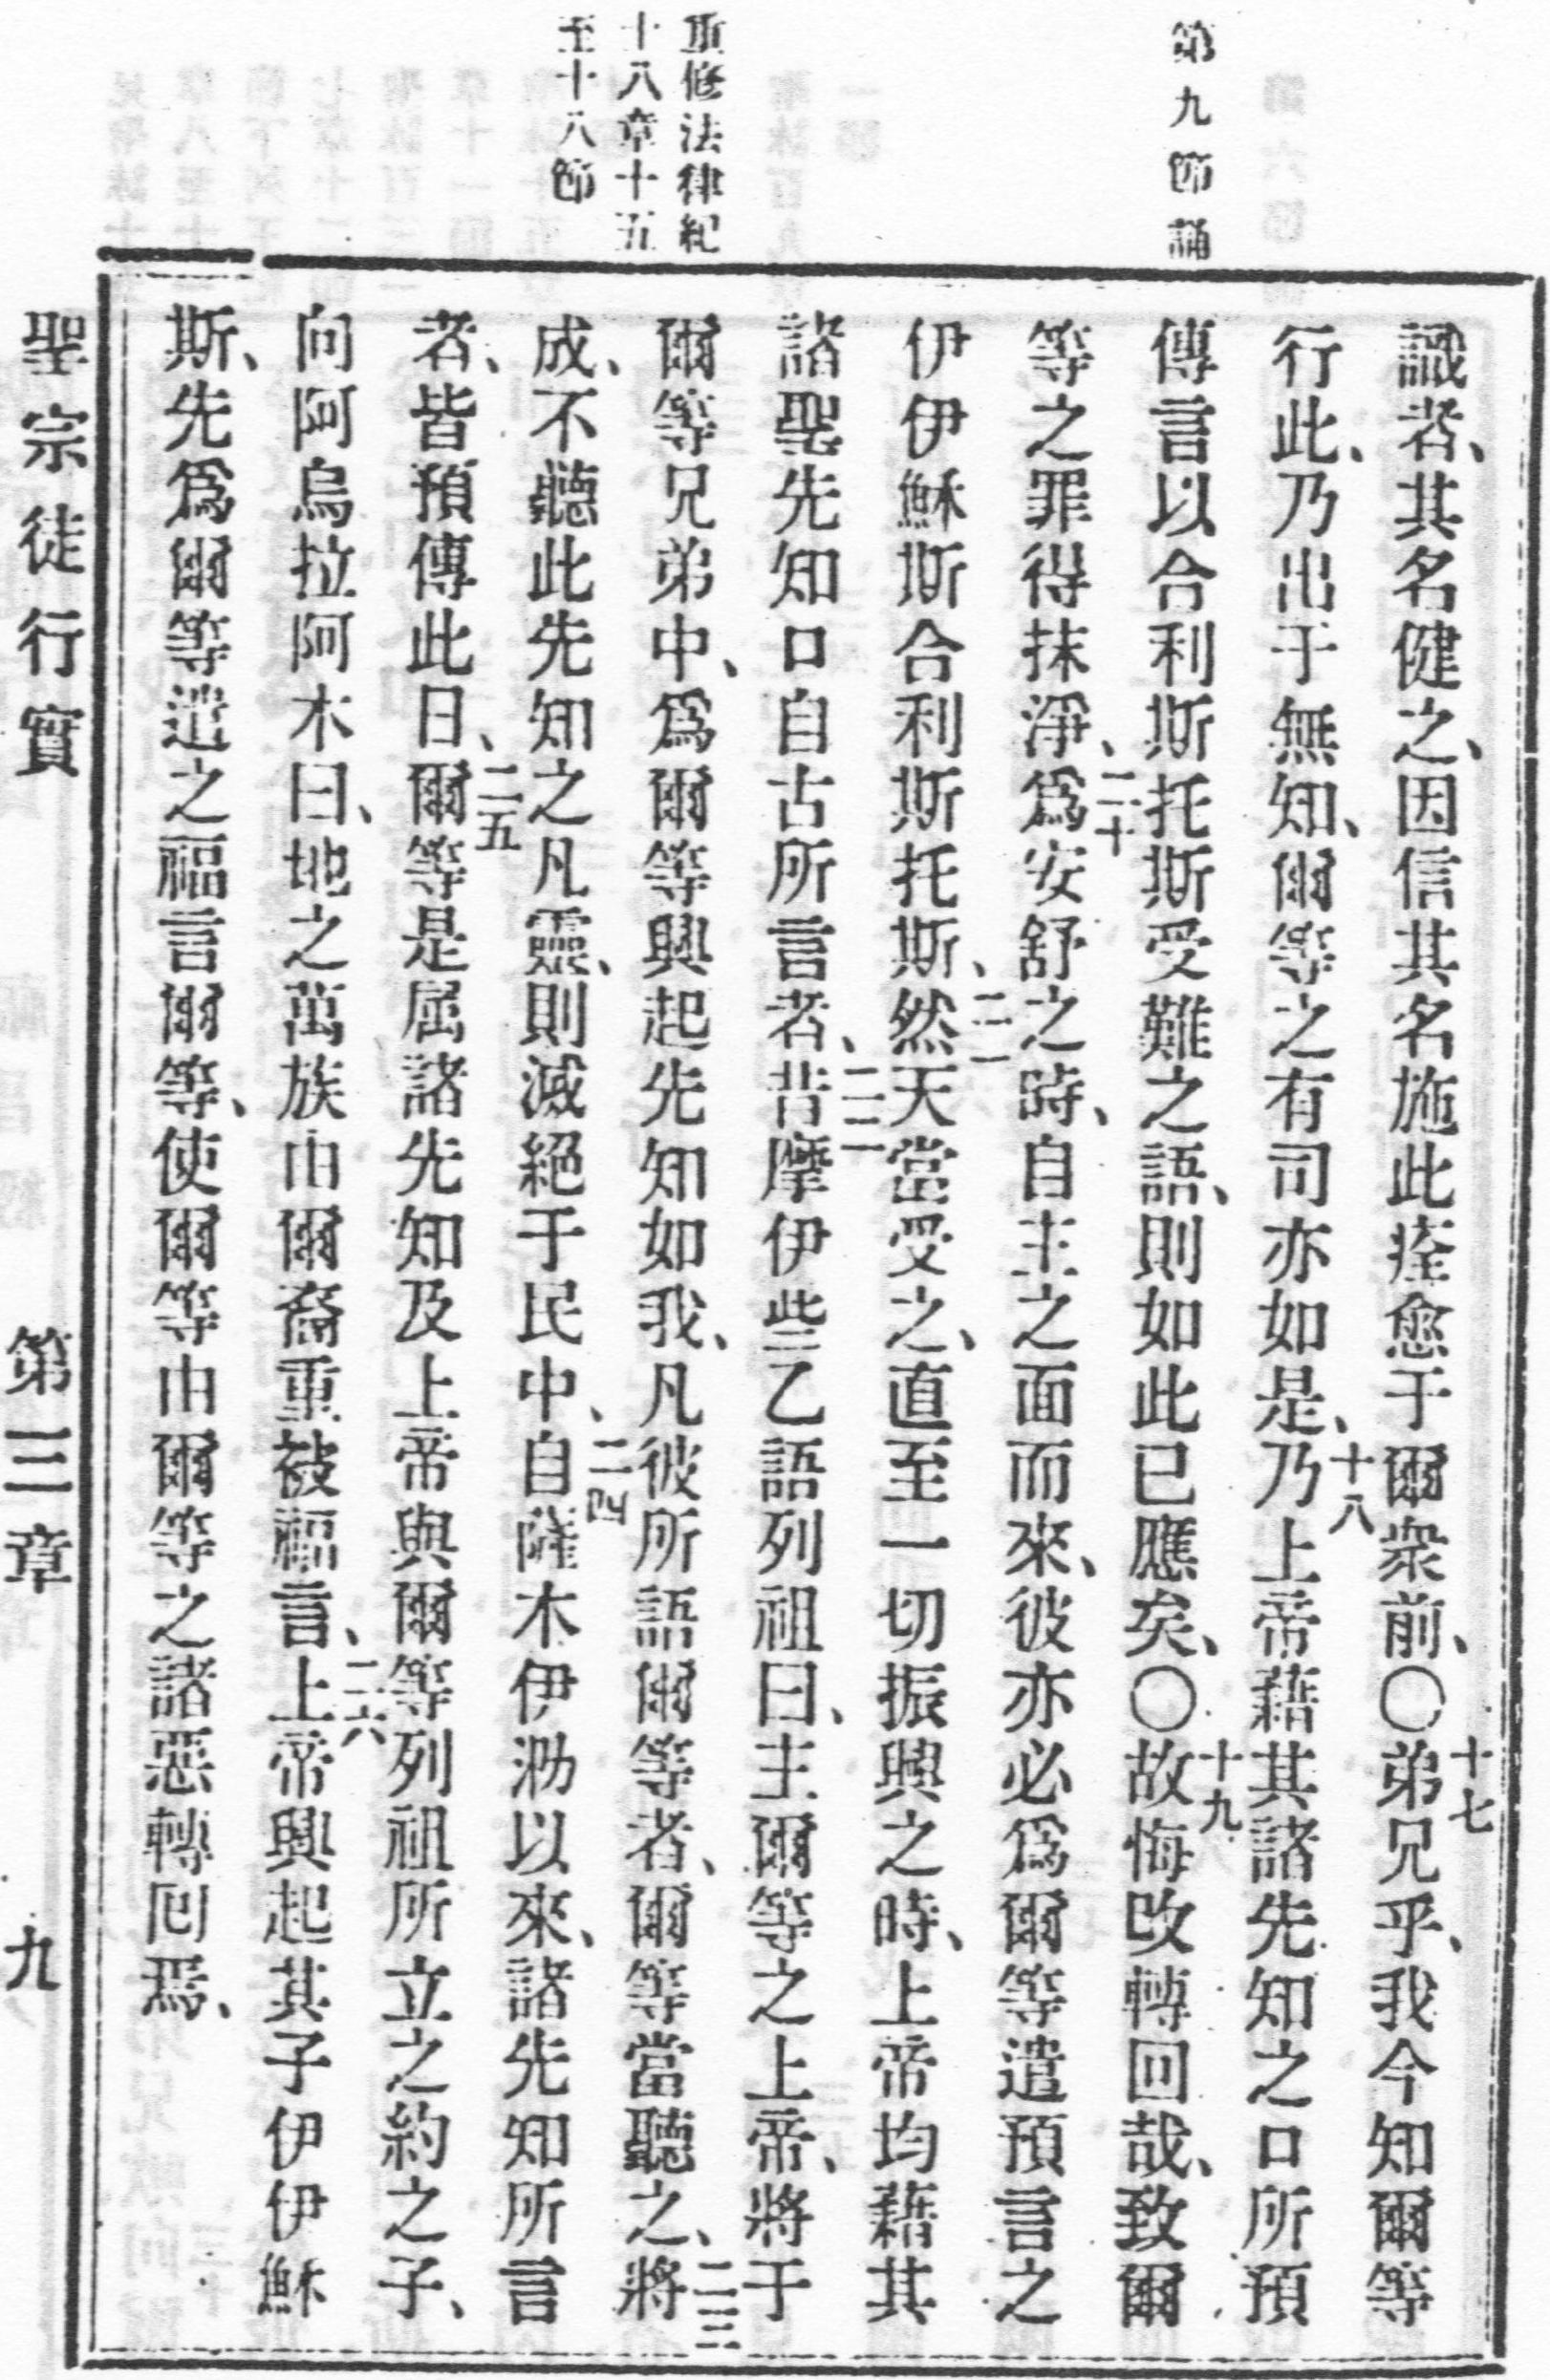 第九節誦
重修法律紀
十八章十五
至十八節
識者、其名健之、因信其名施此痊愈于爾衆前、〇十七弟兄乎、我今知爾等
行此、乃出于無知、爾等之有司亦如是、十八乃上帝藉其諸先知之口所預
傳言以合利斯托斯受難之語、則如此已應矣、〇十九故悔改轉回哉、致爾
等之罪得抹淨、二十爲安舒之時、自主之面而來、彼亦必爲爾等遣預言之
伊伊穌斯合利斯托斯、二一然天當受之、直至一切振興之時、上帝均藉其
諸聖先知口自古所言者、二二昔摩伊些乙語列祖曰、主爾等之上帝、將于
爾等兄弟中、爲爾等興起先知如我、凡彼所語爾等者、爾等當聽之、二三將
成、不聽此先知之凡靈、則滅絕于民中、二四自薩木伊泐以來、諸先知所言
者、皆預傳此日、二五爾等是屆諸先知及上帝與爾等列祖所立之約之子、
向阿烏拉阿木曰、地之萬族由爾裔重被福言、二六上帝興起其子伊伊穌
斯、先爲爾等遣之福言爾等、使爾等由爾等之諸惡轉回焉、
聖宗徒行實 第三章 九